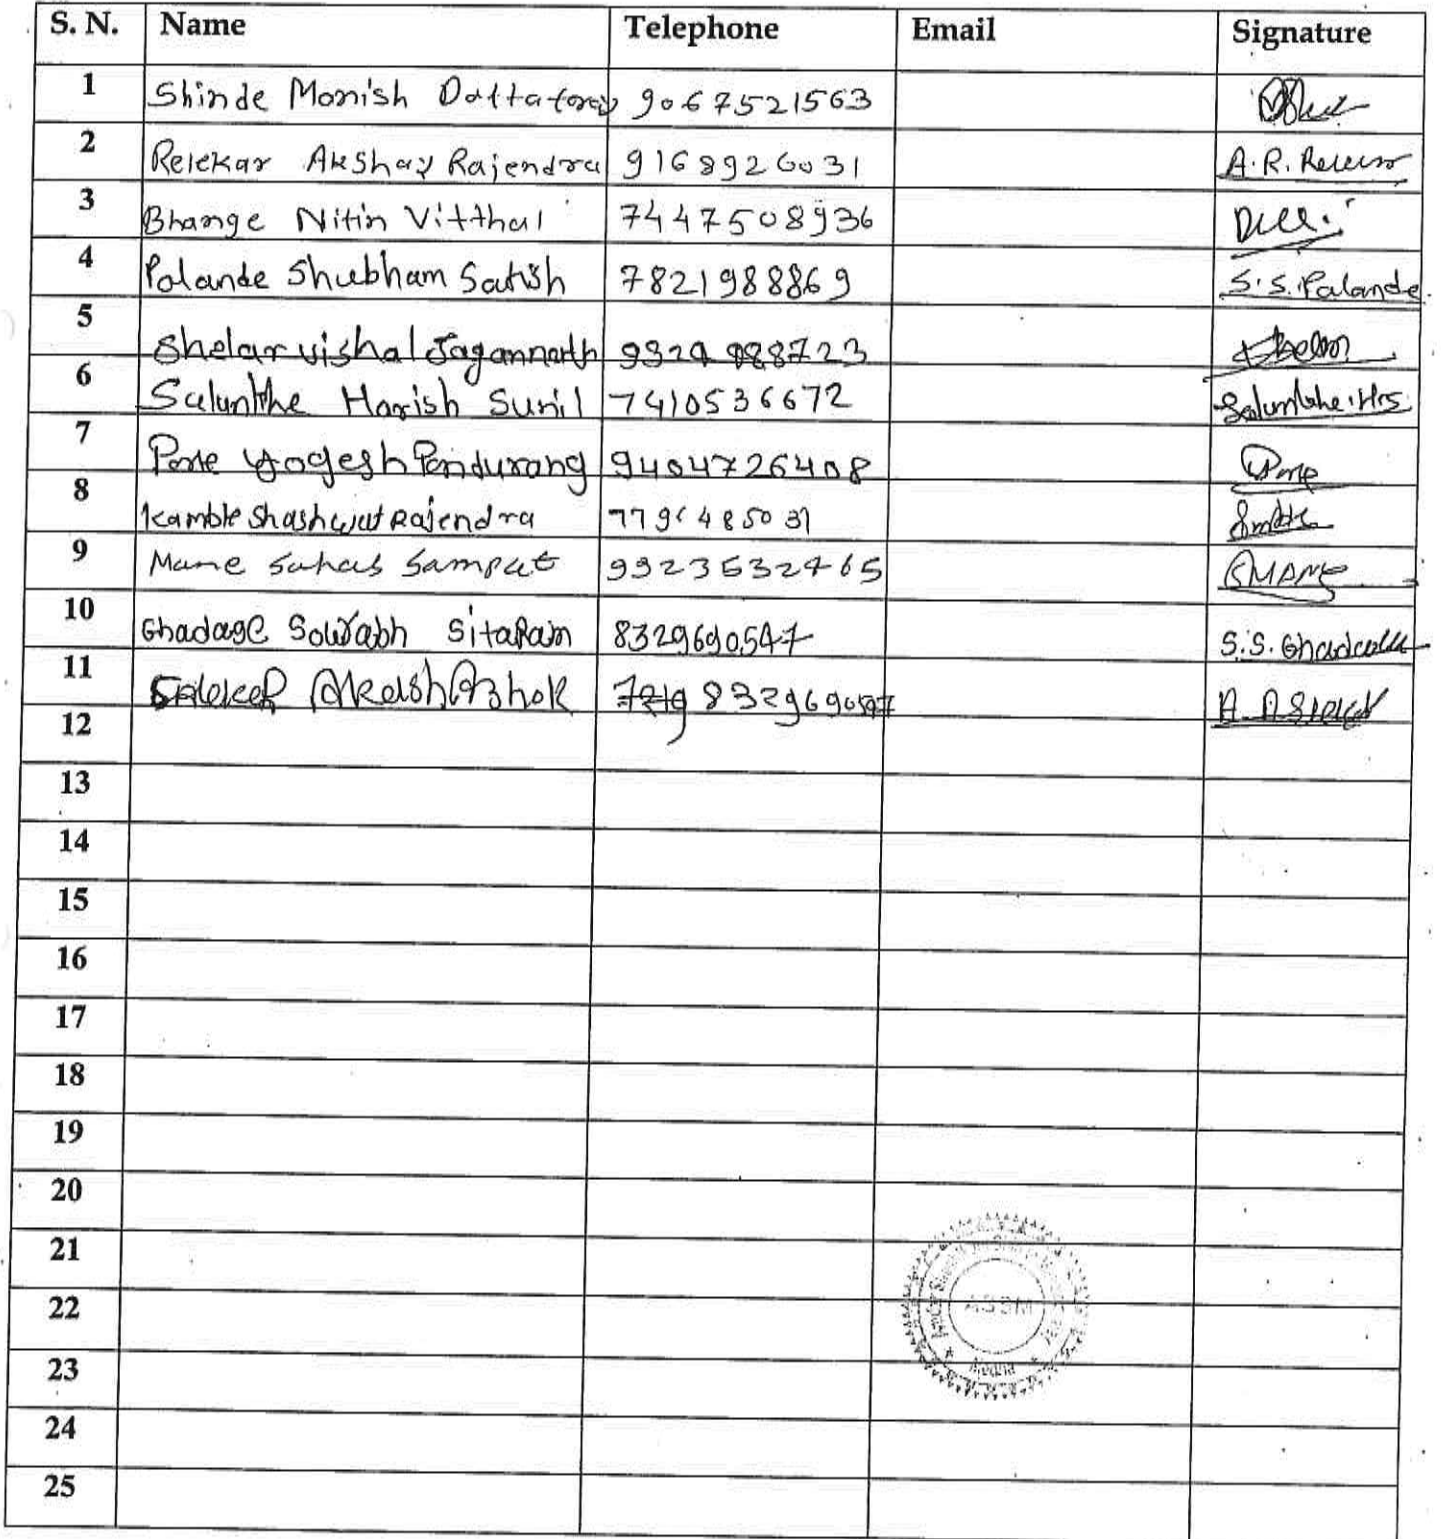 S. N. Name Telephone Email Signature
1 Shinde Monish Dattatray 9067521563
2 Relekar Akshay Rajendra 9168926031 A.R.
3 Bhange Nitin Vitthal 7447508936
4 Palande Shubham Satish 7821988869 S.S. Palande
5 Shelar vishal Jagannath
6 Salunkhe Harish Sunil 7410536672 Salunkhe.H.S.
7 Pane Yogesh Pandurang 9404726408
8 Kamble Shashwat Rajendra
9 Mane Suhas Sampat
10 Ghadage Sourabh SitaRam 8329690547 S.S.
11 Akash Ashok 8329690547
12
13
14
15
16
17
18
19
20
21
22 ASSM
23
24
25